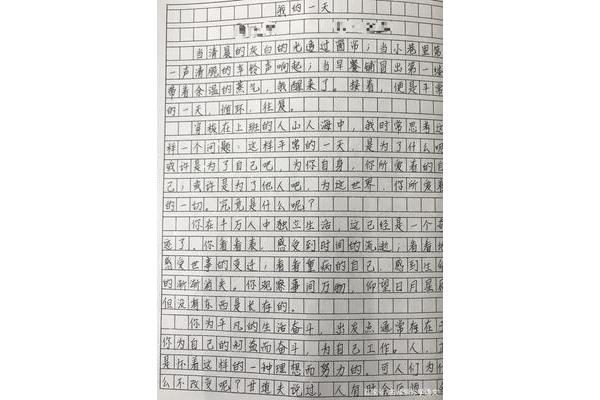 我的一天
当清晨的灰白的光透过窗帘；当小巷里第
一声清脆的车铃声响起；当早餐铺冒出第一缕
带着余温的蒸气，我醒来了。接着，便是平常
的一天，循环，往复。
穿梭在上班的人山人海中，我时常思考这
样一个问题，这样平常的一天，是为了什么呢
或许是为了自己吧，为你自身，你所爱着的自
己；或许是为了他人吧，为这世界，你所爱着
的一切。究竟是什么呢？
你在千万人中独立生活，这已经是一个奇
迹了。你看着表，感受到时间的流逝；看着
感受世事的变迁；看着重病的自己，感到生命
的渐渐消失。你观察事间万物，仰望日月星辰
但没有东西是长存的。
你为平凡的生活奋斗，出发点通常存在
你为自己的利益而奋斗，为自己工作。人，
是怀着这样的一种理想而努力的。可人们为什
么不改变呢？甘道夫说过，人有时会